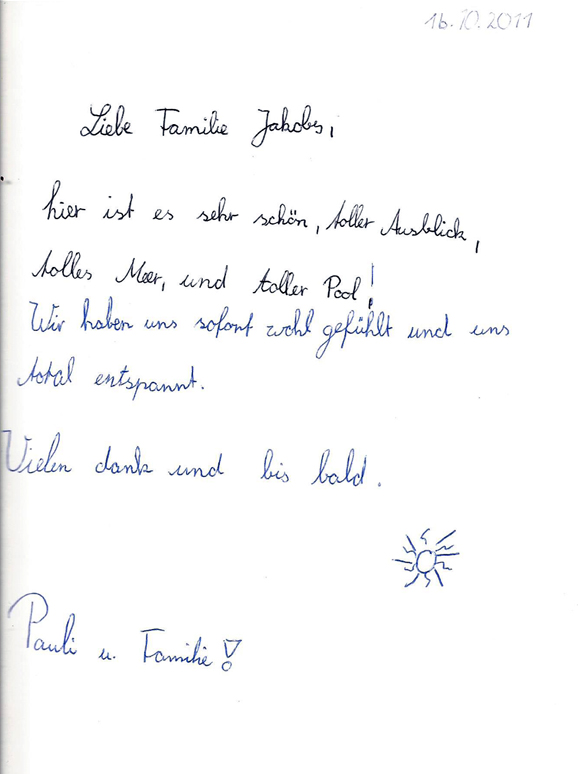 16.10.2011
Liebe Familie Jakobs,
hier ist es sehr schön, toller Ausblick,
tolles Meer, und toller Pool!
Wir haben uns sofort wohl gefühlt und uns
total entspannt.
Vielen dank und bis bald.
Pauli u. Familie!